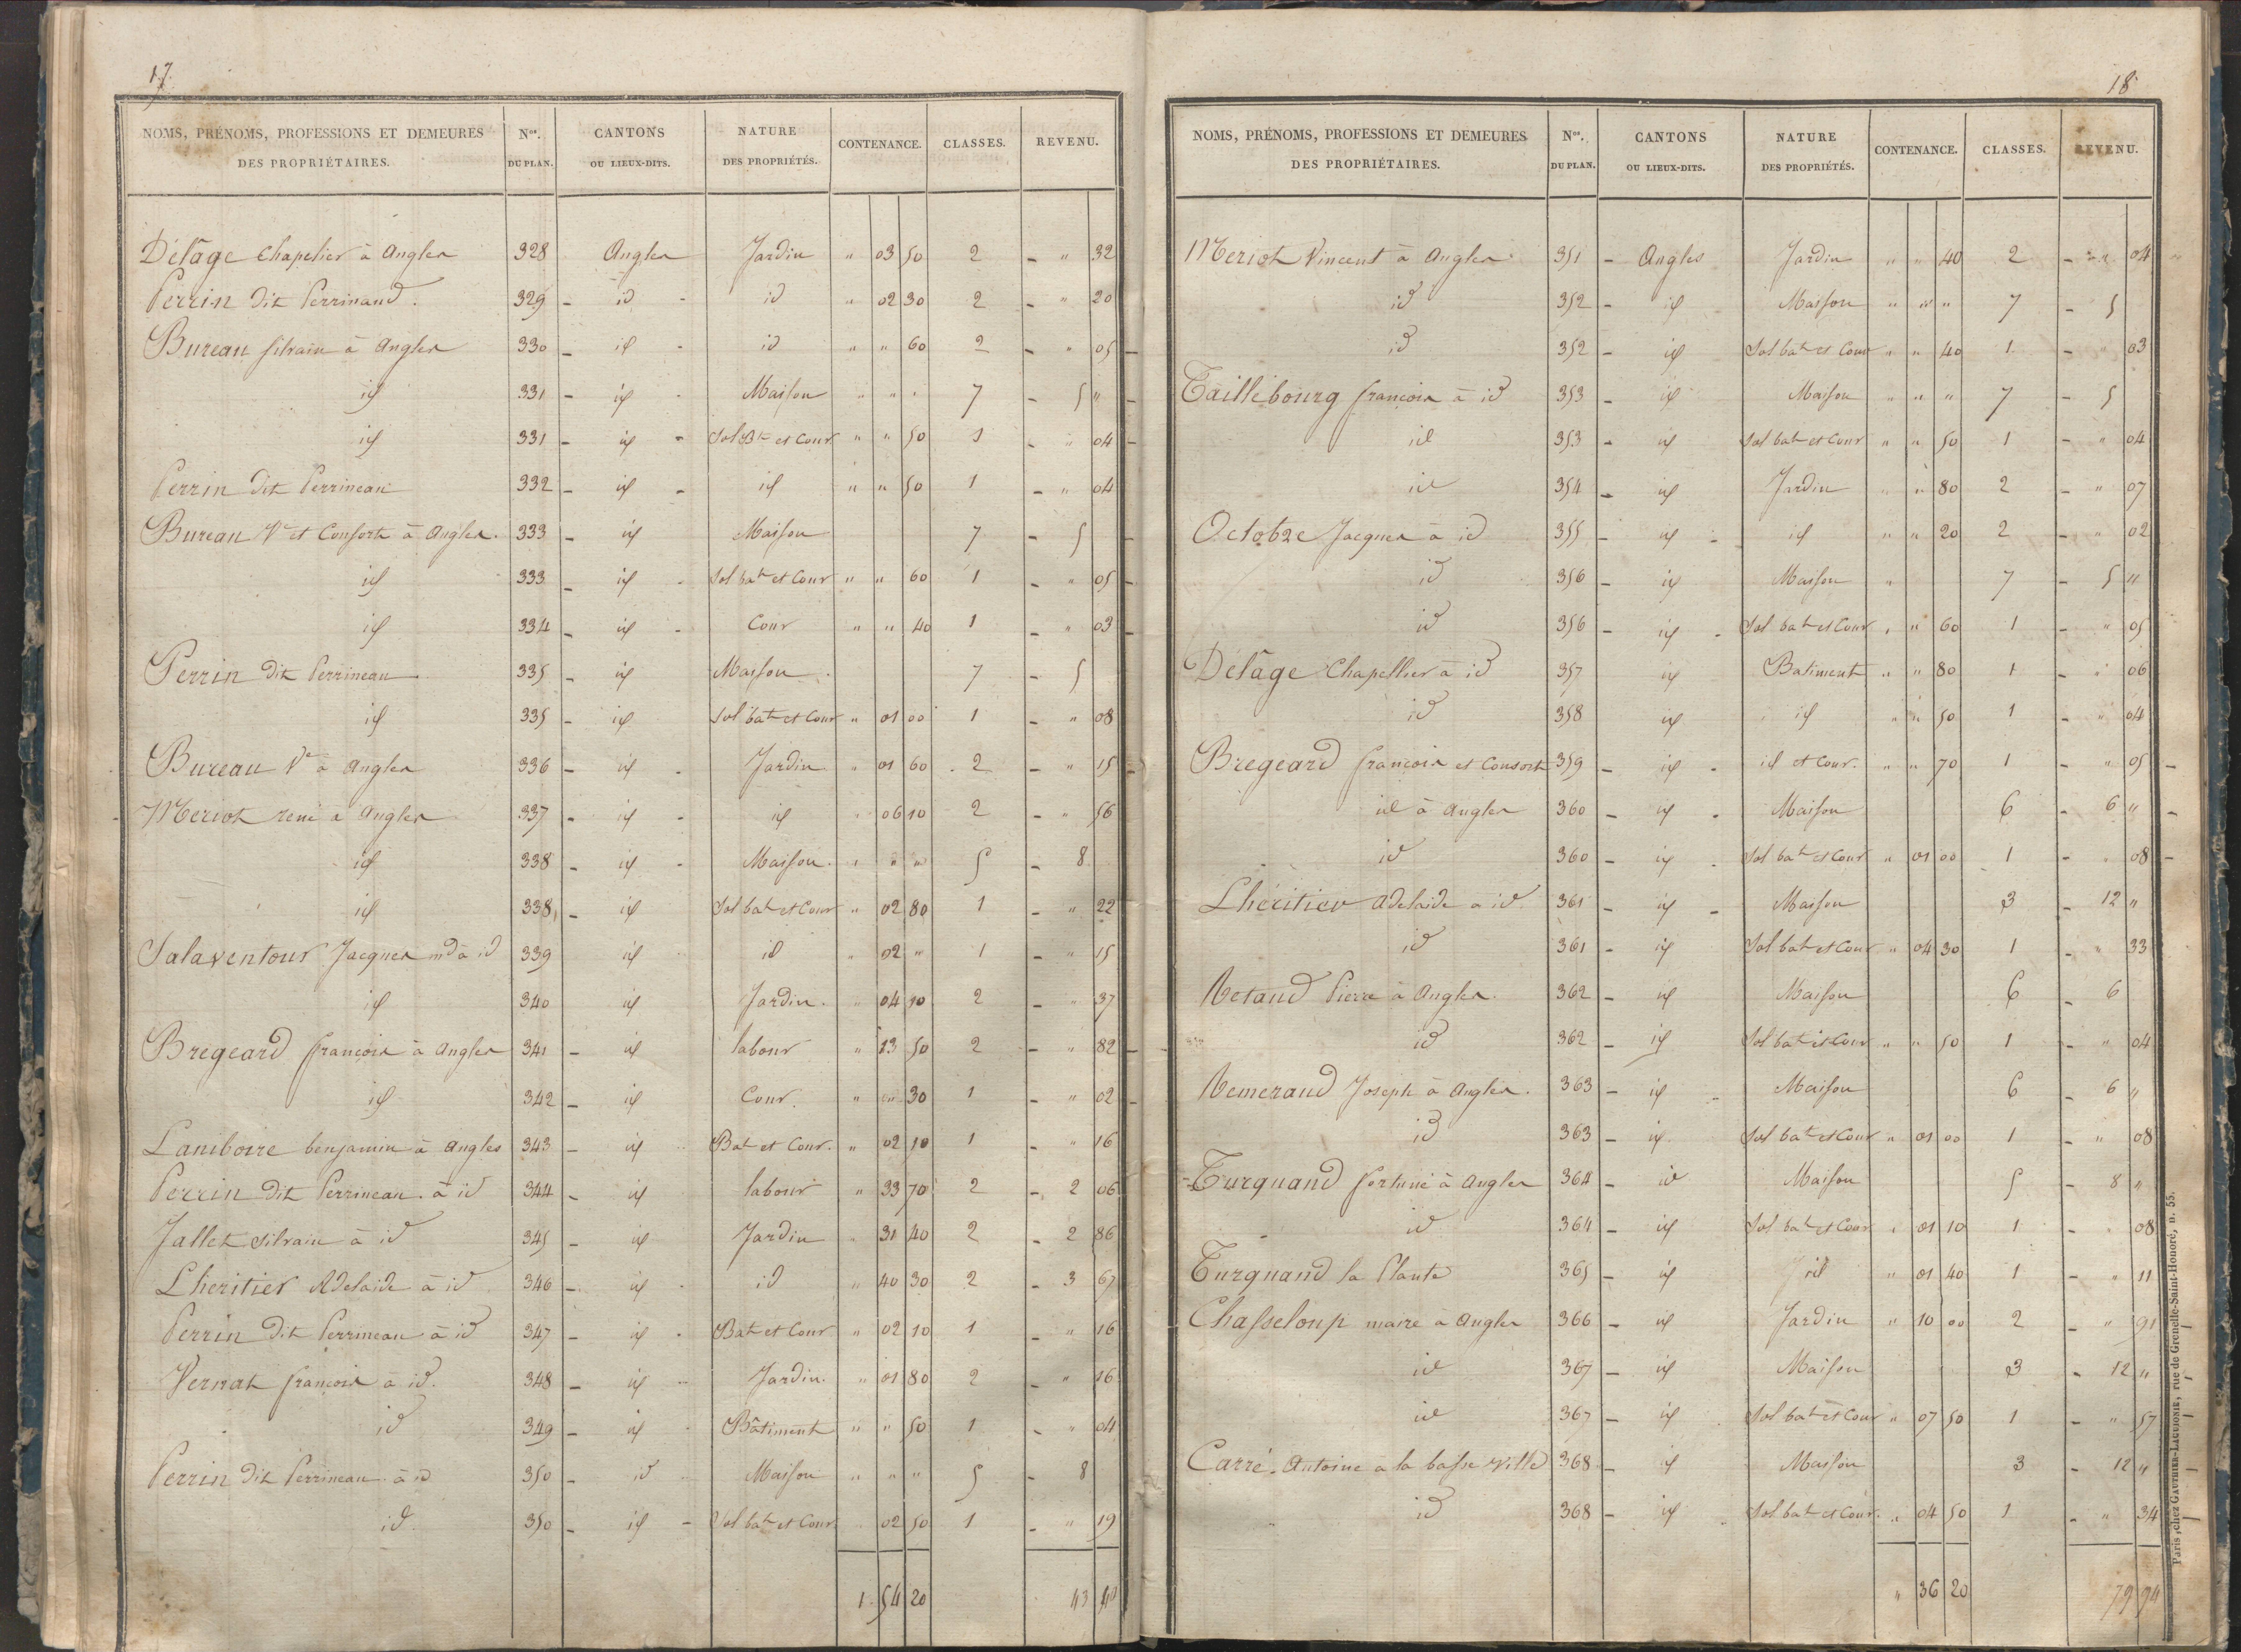 17.
NOMS, PRÉNOMS, PROFESSIONS ET DEMEURES DES PROPRIÉTAIRES. Nos. DU PLAN. CANTONS OU LIEUX-DITS. NATURE DES PROPRIÉTÉS. CONTENANCE. CLASSES. REVENU.
Délâge Chapelier à Angles 328 Angles Jardin " 03 50 2 - " 32
Perrin dit Perrinaud. 329 - id - id " 02 30 2 - " 20
Bureau silvain à Angles 330 - id - id " " 60 2 - " 05
id 331 - id - Maison " " " 7 - 5 "
id 331 - id - Sol Bt et Cour " " 50 1 - " 04
Perrin dit Perrineau 332 - id - id " " 50 1 - " 04
Bureau Ve et Consorts à Angles. 333 - id Maison 7 - 5
id 333 - id - Sol bat et Cour " " 60 1 - " 05
id 334 - id - Cour " " 40 1 - " 03
Perrin dit Perrineau 335 - id Maison. 7 - 5
id 335 - id Sol bat et Cour " 01 00 1 - " 08
Bureau Ve à Angles 336 - id - Jardin " 01 60 2 - " 15
Meriot rené à Angles 337 - id - id " 06 10 2 - " 56
id 338 - id - Maison. " " " 5 - 8
id 338 - id Sol bat et Cour " 02 80 1 - " 22
Salaventour Jacques md à id 339 id id " 02 " 1 - " 15
id 340 id Jardin. " 04 10 2 - " 37
Bregeard françois à Angles 341 - id labour " 13 50 2 - " 82
id 342 - id Cour. " " 30 1 - " 02
Lamboire benjamin à Angles 343 - id Bat et Cour. " 02 10 1 - " 16
Perrin dit Perrineau. à id 344 - id labour " 33 70 2 - 2 06
Jallet silvain à id 345 - id Jardin " 31 40 2 - 2 86
Lheritier Adelaide à id 346 - id - id " 40 30 2 - 3 67
Perrin dit Perrineau à id 347 - id - Bat et Cour " 02 10 1 - " 16
Vernat françois à id. 348 - id - Jardin. " 01 80 2 - " 16
id 349 - id - Bâtiment " " 50 1 - " 04
Perrin dit Perrineau. à id 350 - id Maison " " " 5 - 8
id. 350 - id - Sol bat et Cour. 02 50 1 - " 19
1. 54 20 43 40
18
NOMS, PRÉNOMS, PROFESSIONS ET DEMEURES DES PROPRIÉTAIRES. Nos. DU PLAN. CANTONS OU LIEUX-DITS. NATURE DES PROPRIÉTÉS. CONTENANCE. CLASSES. REVENU.
Meriot Vincent à Angles 351 - Angles Jardin " " 40 2 - " 04
id 352 - id Maison " " " 7 - 5
id 352 - id Sol bat et Cour " " 40 1 - " 03
Taillebourg françois à id 353 - id Maison " " " 7 - 5
id 353 - id Sol bat et Cour " " 50 1 - " 04
id 354 - id Jardin " " 80 2 - " 07
Octobre Jacques à id 355 - id - id " " 20 2 - " 02
id 356 - id Maison " 7 - 5 "
id 356 - id - Sol bat et Cour " " 60 1 - " 05
Délâge Chapellier à id 357 id Batiment " " 80 1 - " 06
id 358 id id " " 50 1 - " 04
Bregeard françois et Consorts 359 - id - id et Cour. " " 70 1 - " 05
id à Angles 360 - id - Maison 6 - 6 "
id 360 - id - Sol bat et Cour " 01 00 1 - " 08
Lhéritier Adelaide à id 361 - id - Maison 3 - 12 "
id 361 - id Sol bat et Cour " 04 30 1 - " 33
Pierre à Angles. 362 - id Maison 6 - 6
id 362 - id Sol bat et Cour " " 50 1 - " 04
Joseph à Angles. 363 - id - Maison 6 - 6 "
id 363 - id Sol bat et Cour " 01 00 1 - " 08
Turquand fortuné à Angles 364 - id Maison 5 - 8 "
id 364 - id Sol bat et Cour " 01 10 1 - " 08
Turquand la Plante 365 - id id " 01 40 1 - " 11
Chasseloup maire à Angles 366 - id Jardin " 10 00 2 - " 91
id 367 - id Maison 3 - 12 "
id 367 - id Sol bat et Cour " 07 50 1 - " 57
Carré Antoine à la basse ville 368 - id Maison 3 - 12 "
id 368 - id Sol bat et Cour. " 04 50 1 - " 34
" 36 20 79 94
Paris, chez GAUTHIER-LAGUIONIE, rue de Grenelle-Saint-Honoré, n. 55.